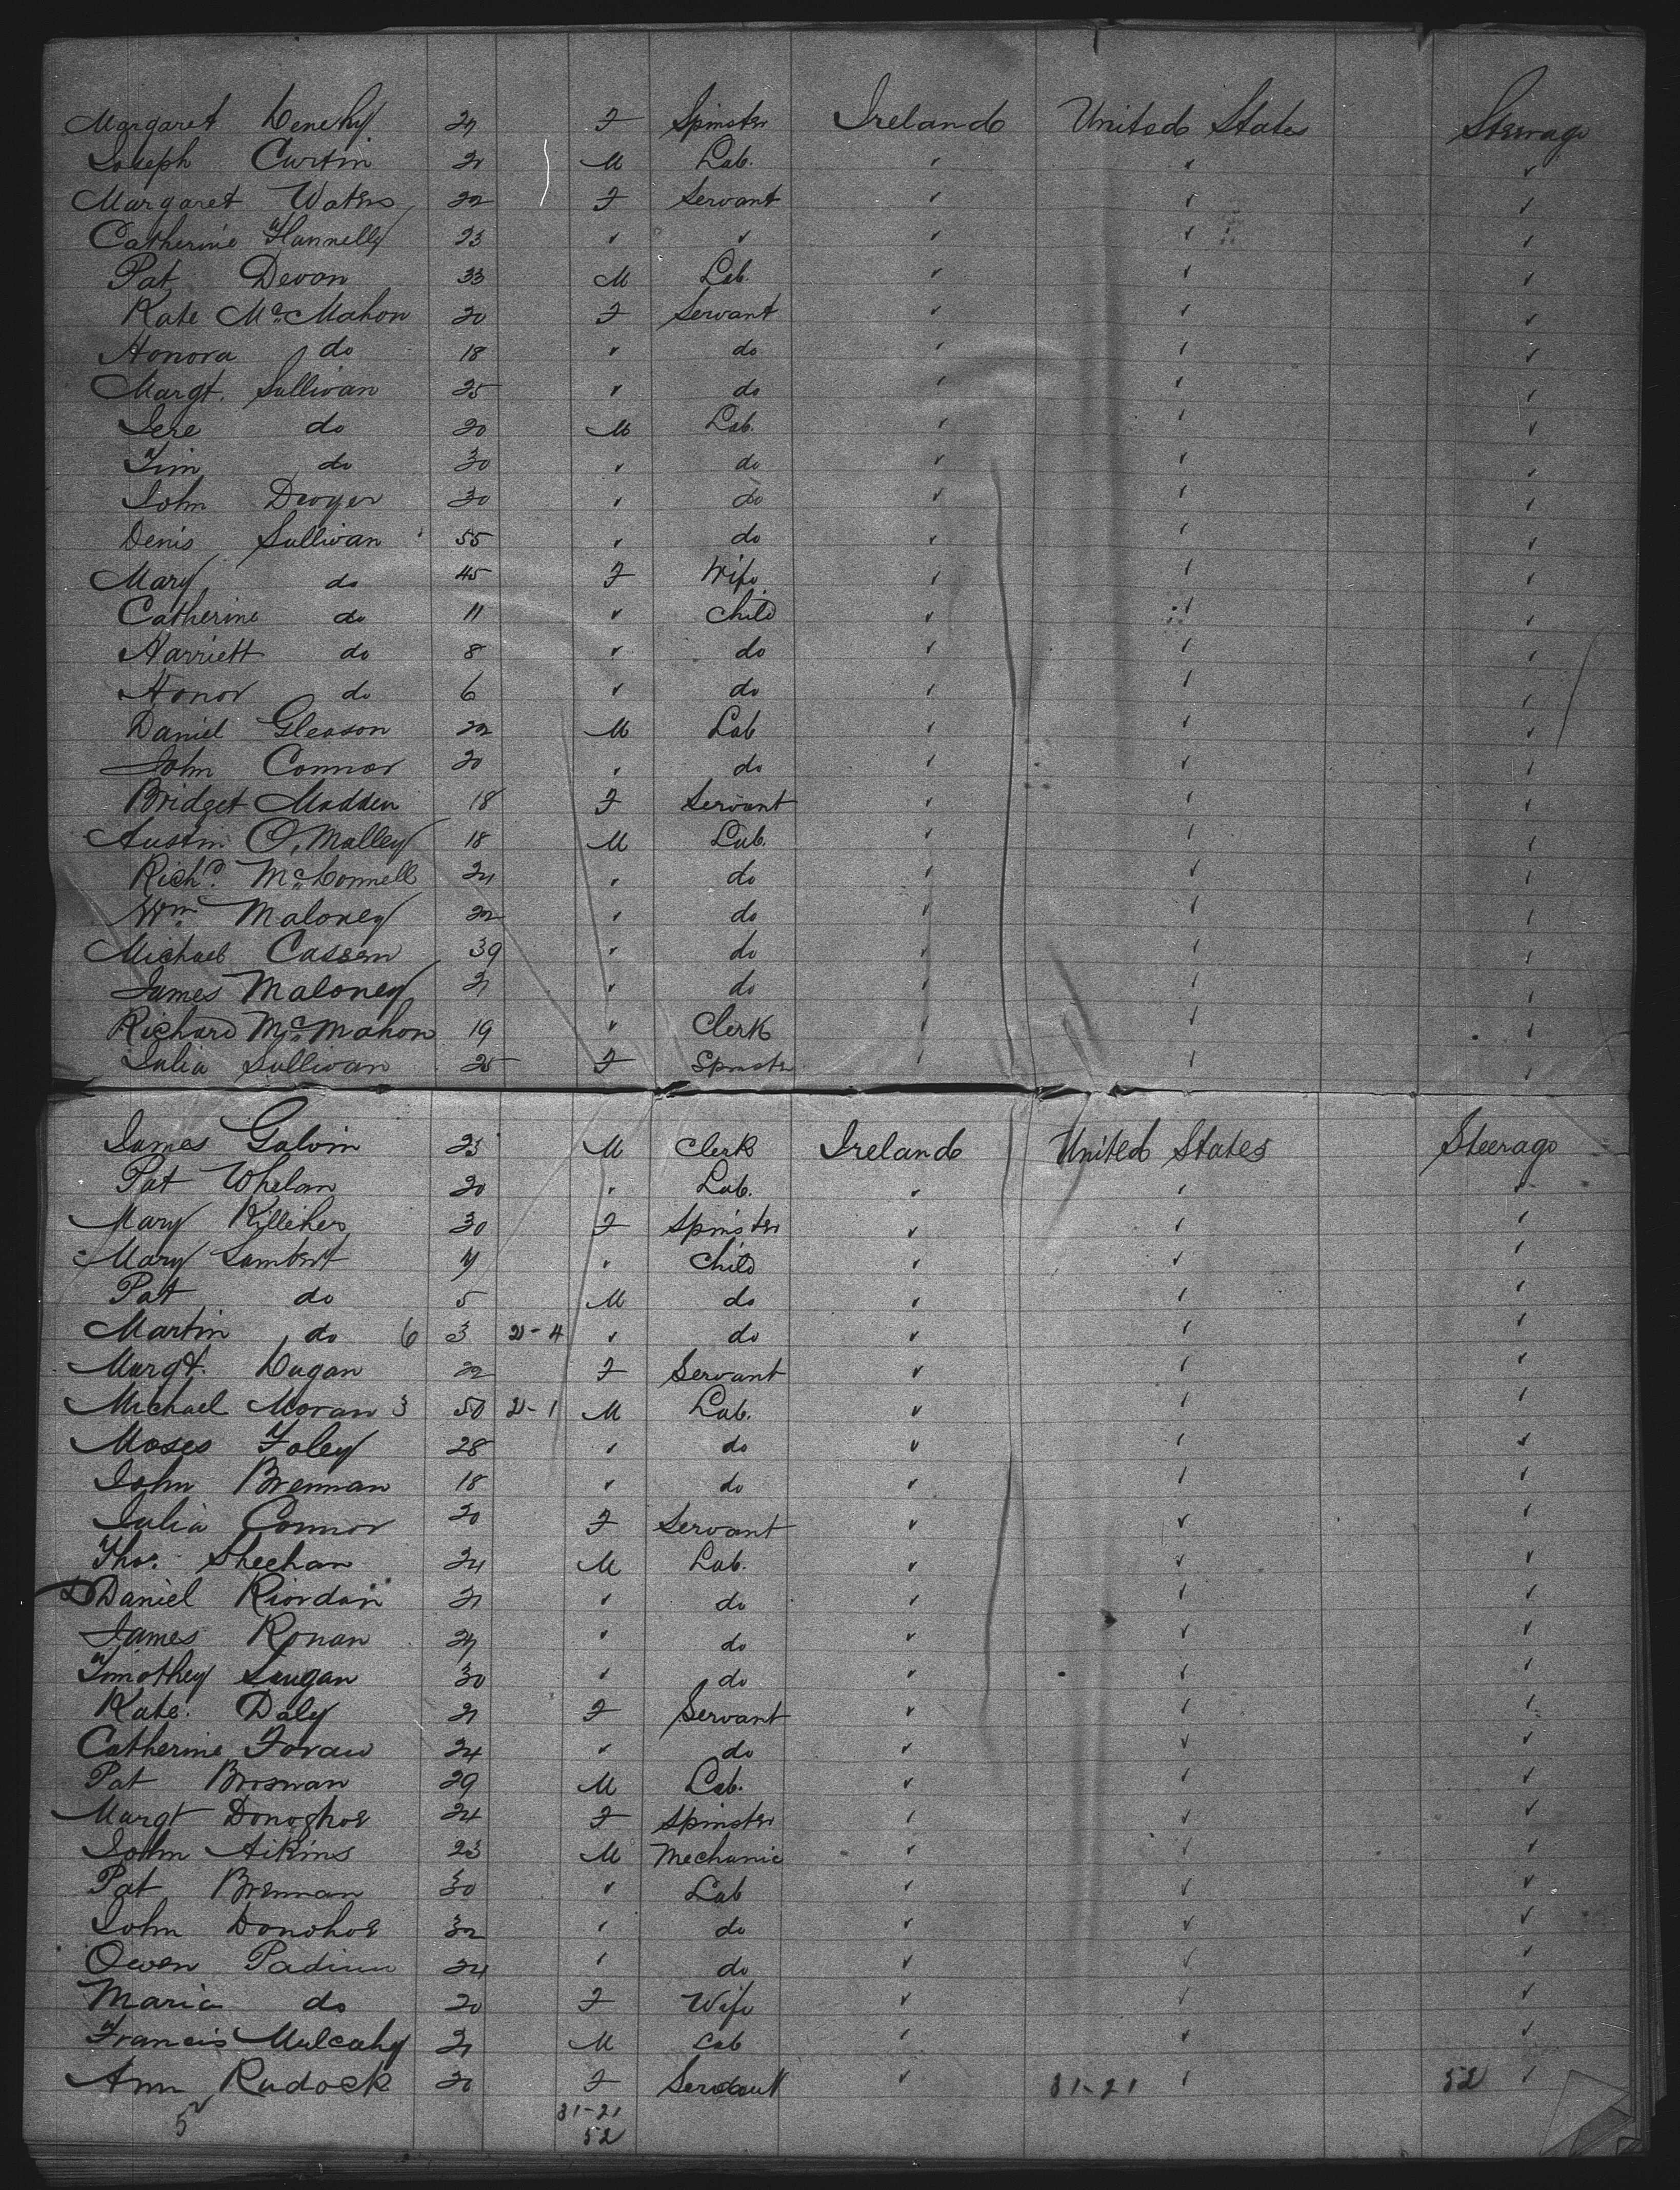 Margaret Denehy 27 F Spinster Ireland United States Steerage
Joseph Curtin 21 M Lab. " " "
Margaret Waters 22 F Servant " " "
Catherine Flannelly 23 " " " " "
Pat Devon 33 M Lab. " " "
Kate McMahon 20 F Servant " " "
Honora do 18 " do " " "
Margt. Sullivan 25 " do " " "
Jere do 20 M Lab. " " "
Tim do 30 " do " " "
John Dwyer 30 " do " " "
Denis Sullivan 55 " do " " "
Mary do 45 F Wife " " "
Catherine do 11 " Child " " "
Harriett do 8 " do " " "
Honor do 6 " do " " "
Daniel Gleason 22 M Lab " " "
John Connor 20 " do " " "
Bridget Madden 18 F Servant " " "
Austin O'Malley 18 M Lab. " " "
Richd. McConnell 21 " do " " "
Wm. Maloney 22 " do " " "
Michael Cassen 39 " do " " "
James Maloney 21 " do " " "
Richard McMahon 19 " Clerk " " "
Julia Sullivan 25 F Spinster " " "
James Galvin 23 M Clerk Ireland United States Steerage
Pat Whelan 20 " Lab. " " "
Mary Killiher 30 F Spinster " " "
Mary Lambert 7 " Child " " "
Pat do 5 M do " " "
Martin do 6 3 21-4 " do " " "
Margt. Dugan 22 F Servant " " "
Michael Moran 3 50 21-1 M Lab. " " "
Moses Foley 28 " do " " "
John Brennan 18 " do " " "
Julia Connor 20 F Servant " " "
Thos. Sheehan 24 M Lab. " " "
Daniel Riordan 21 " do " " "
James Ronan 27 " do " " "
Timothey Laugan 30 " do " " "
Kate Daly 21 F Servant " " "
Catherine Foran 24 " do " " "
Pat Brosnan 29 M Lab. " " "
Margt Donoghoe 24 F Spinster " " "
John Aikins 23 M Mechanic " " "
Pat Brennan 30 " Lab " " "
John Donohoe 32 " do " " "
Owen 24 " do " " "
Maria do 20 F Wife " " "
Francis Mulcahy 21 M Lab " " "
Ann Rudock 20 F Servant " 31-21 " 52 "
52 31-21
52